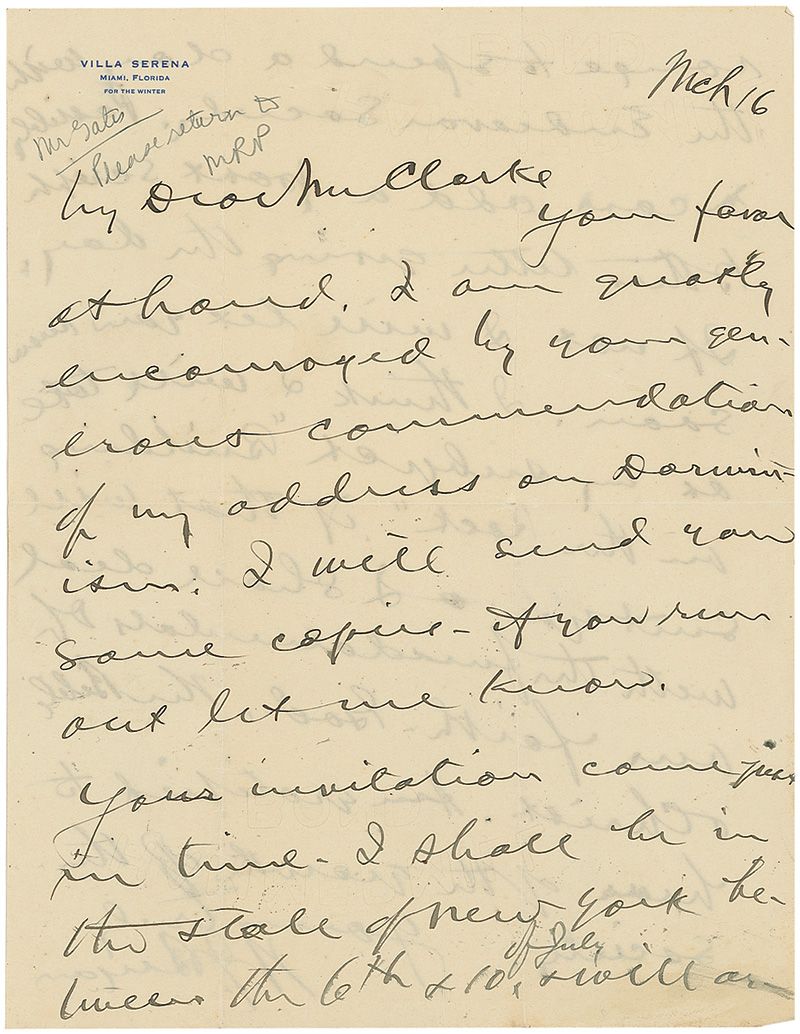 VILLA SERENA
MIAMI, FLORIDA
FOR THE WINTER
Mch 16
Mr Gates
Please return to
MRP
My Dear Mr Clarke
Your favor
at hand. I am greatly
encouraged by your gen-
erous commendation
of my address on Darwin-
ism. I will send you
some copies - If you run
out let me know.
Your invitation came just
in time - I shall be in
the state of New York be-
tween the 6th & 10, of July & will ar-